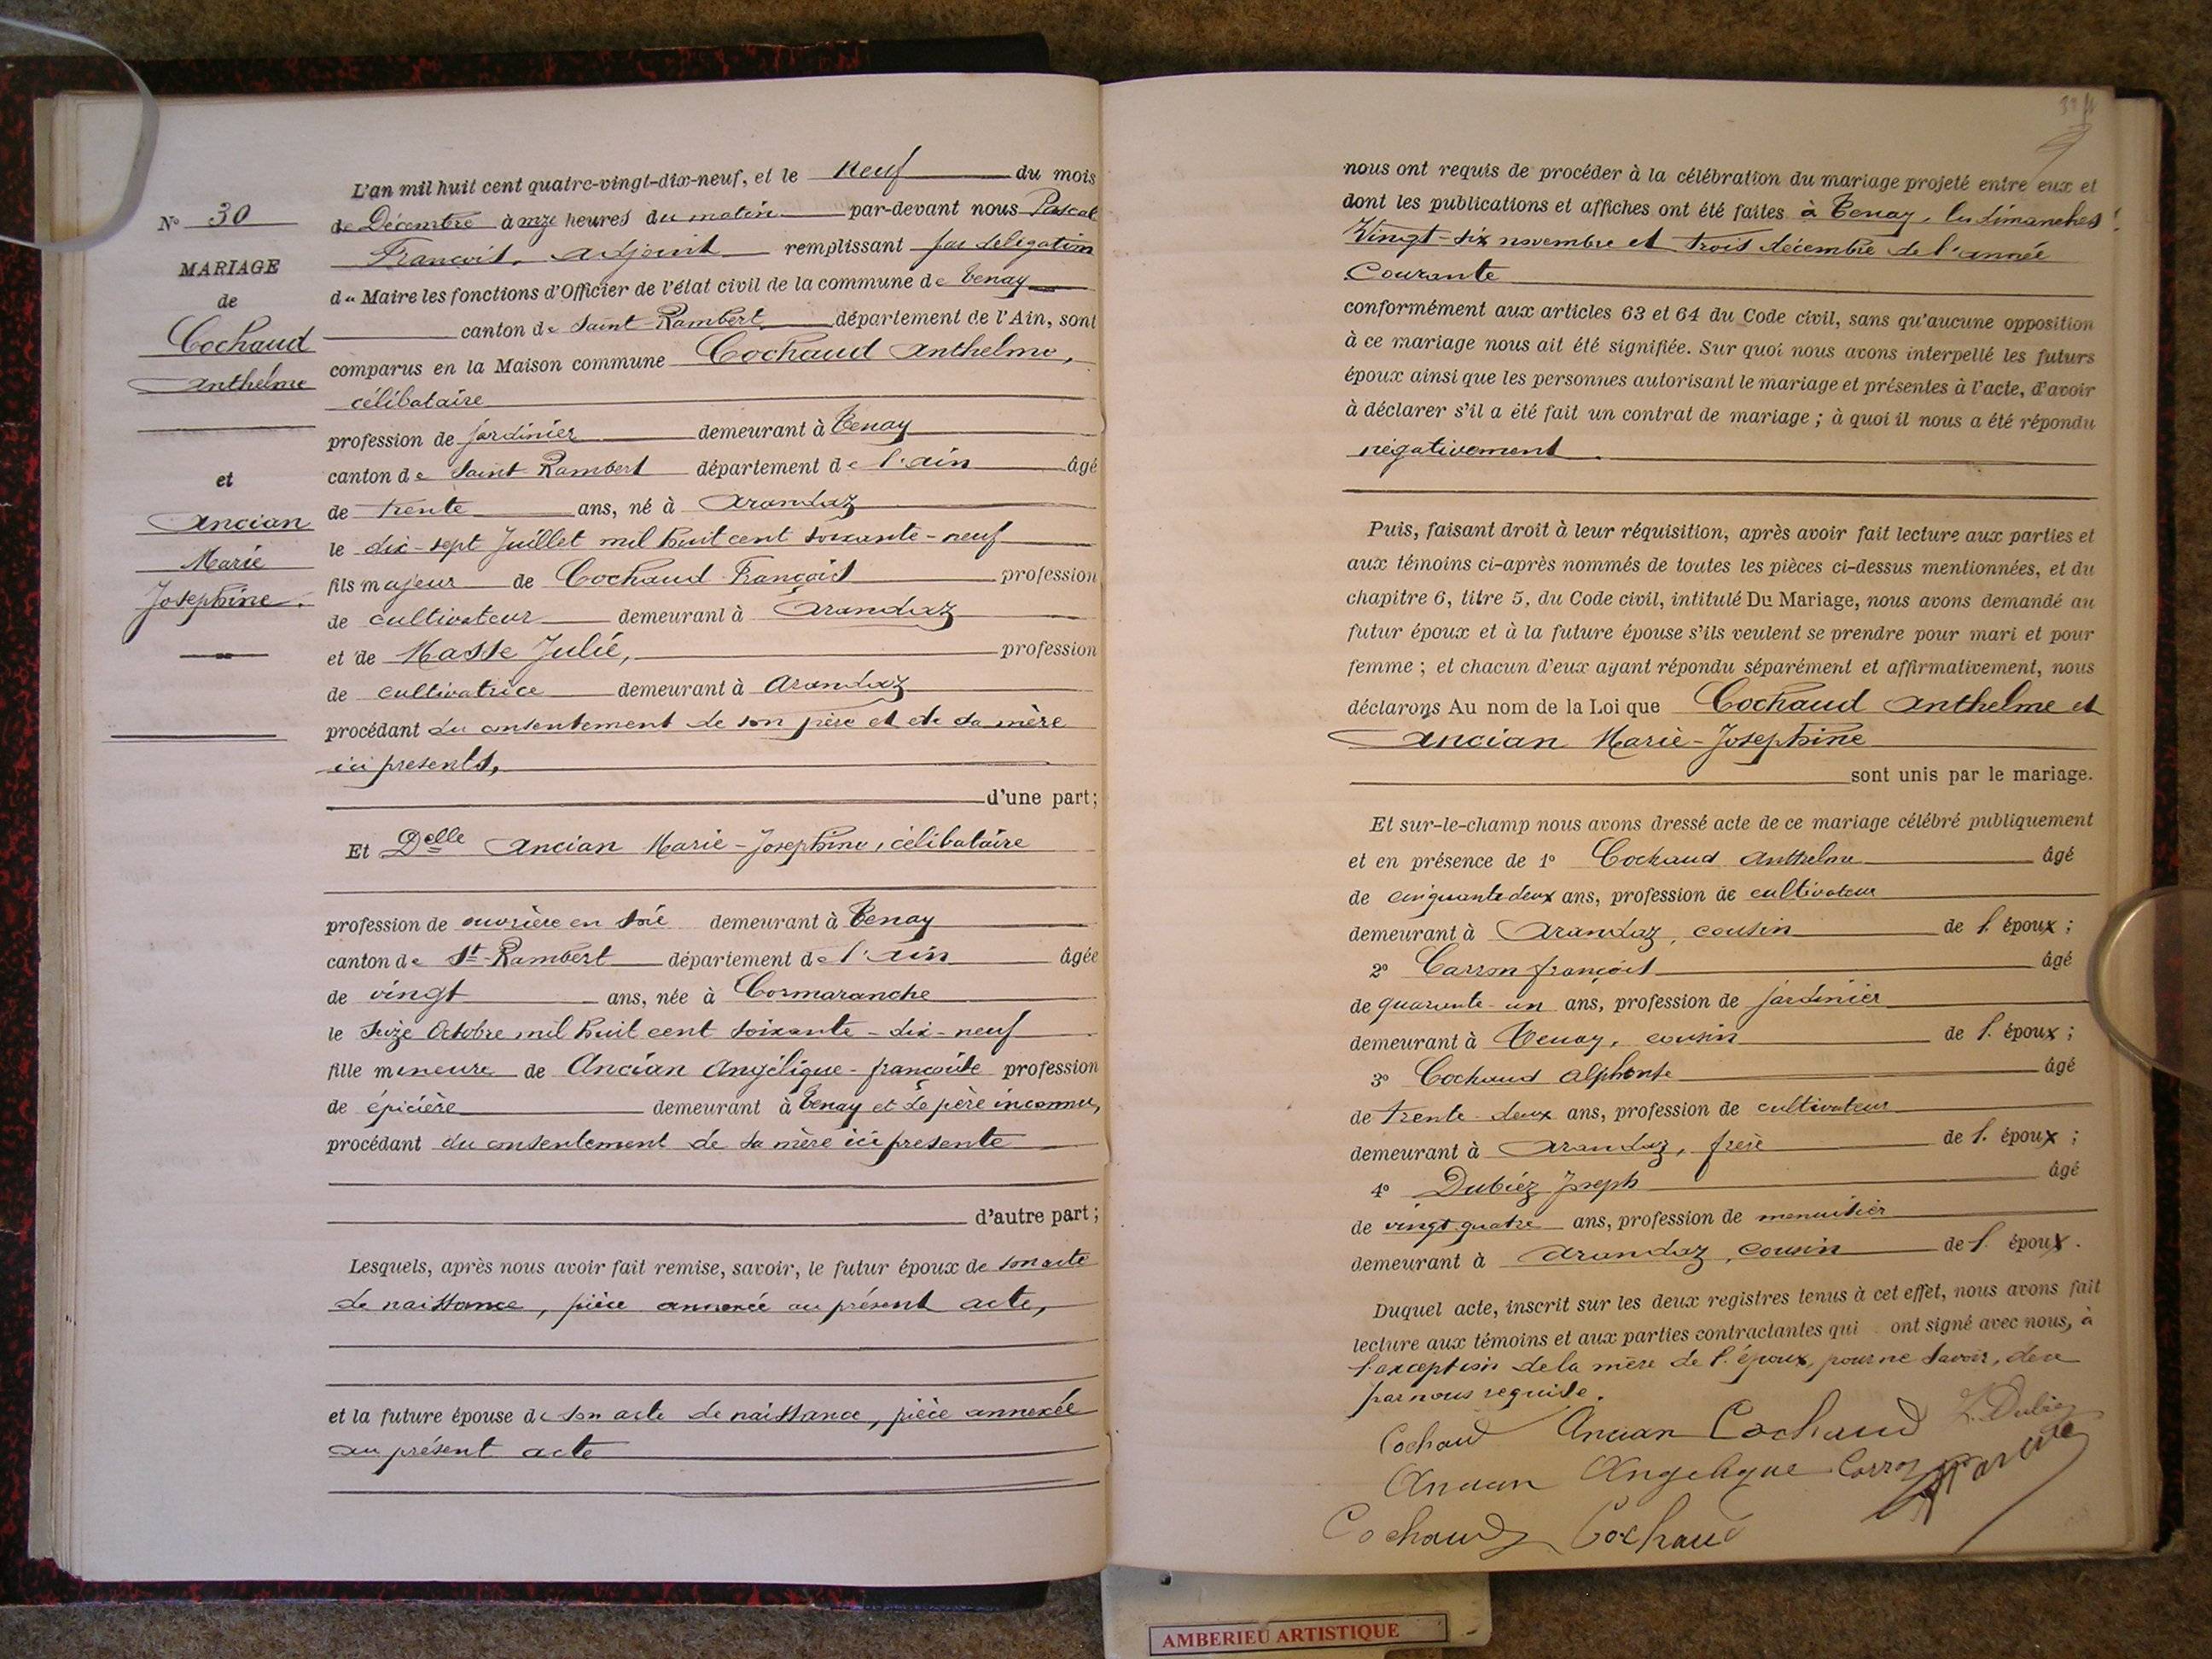 N° 30
MARIAGE
de
Cochaud
Anthelme
et
Ancian
Marie
Josephine.
L'an mil huit cent quatre-vingt-dix-neuf, et le neuf du mois
de Décembre à onze heures du matin par-devant nous Pascal
François, adjoint remplissant par délégation
du Maire les fonctions d'Officier de l'état civil de la commune de Tenay
canton de Saint-Rambert département de l'Ain, sont
comparus en la Maison commune Cochaud Anthelme,
célibataire
profession de jardinier demeurant à Tenay
canton de Saint-Rambert département de l'Ain âgé
de trente ans, né à Arandaz
le dix-sept Juillet mil huit cent soixante-neuf
fils majeur de Cochaud François profession
de cultivateur demeurant à Arandaz
et de Masse Julie, profession
de cultivatrice demeurant à Arandaz
procédant du consentement de son père et de sa mère
ici presents,
d'une part;
Et Delle Ancian Marie-Josephine, célibataire
profession de ouvrière en soie demeurant à Tenay
canton de St-Rambert département de l'Ain âgée
de vingt ans, née à Cormaranche
le seize Octobre mil huit cent soixante-dix-neuf
fille mineure de Ancian Angélique-françoise profession
de épicière demeurant à Tenay et de père inconnu,
procédant du consentement de sa mère ici presente
d'autre part;
Lesquels, après nous avoir fait remise, savoir, le futur époux de son acte
de naissance, pièce annexée au présent acte,
et la future épouse de son acte de naissance, pièce annexée
au présent acte
nous ont requis de procéder à la célébration du mariage projeté entre eux et
dont les publications et affiches ont été faites à Tenay, les dimanches
Vingt-six novembre et trois décembre de l'année
Courante
conformément aux articles 63 et 64 du Code civil, sans qu'aucune opposition
à ce mariage nous ait été signifiée. Sur quoi nous avons interpellé les futurs
époux ainsi que les personnes autorisant le mariage et présentes à l'acte, d'avoir
à déclarer s'il a été fait un contrat de mariage; à quoi il nous a été répondu
négativement.
Puis, faisant droit à leur réquisition, après avoir fait lecture aux parties et
aux témoins ci-après nommés de toutes les pièces ci-dessus mentionnées, et du
chapitre 6, titre 5, du Code civil, intitulé Du Mariage, nous avons demandé au
futur époux et à la future épouse s'ils veulent se prendre pour mari et pour
femme; et chacun d'eux ayant répondu séparément et affirmativement, nous
déclarons Au nom de la Loi que Cochaud Anthelme et
Ancian Marie-Josephine
sont unis par le mariage.
Et sur-le-champ nous avons dressé acte de ce mariage célébré publiquement
et en présence de 1° Cochaud Anthelme âgé
de cinquante deux ans, profession de cultivateur
demeurant à Arandaz, cousin de l'époux;
2° Carron françois âgé
de quarante-un ans, profession de jardinier
demeurant à Tenay, cousin de l'époux;
3° Cochaud Alphonse âgé
de trente-deux ans, profession de cultivateur
demeurant à Arandaz, frère de l'époux;
4° Dubiéz Joseph âgé
de vingt quatre ans, profession de menuisier
demeurant à Arandaz, cousin de l'époux.
Duquel acte, inscrit sur les deux registres tenus à cet effet, nous avons fait
lecture aux témoins et aux parties contractantes qui ont signé avec nous, à
l'exception de la mère de l'époux, pour ne savoir, de ce
par nous requise.
Cochaud Ancian Cochaud J. Dubiez
Ancian Angelique Carron
Cochaud Cochaud
AMBERIEU ARTISTIQUE